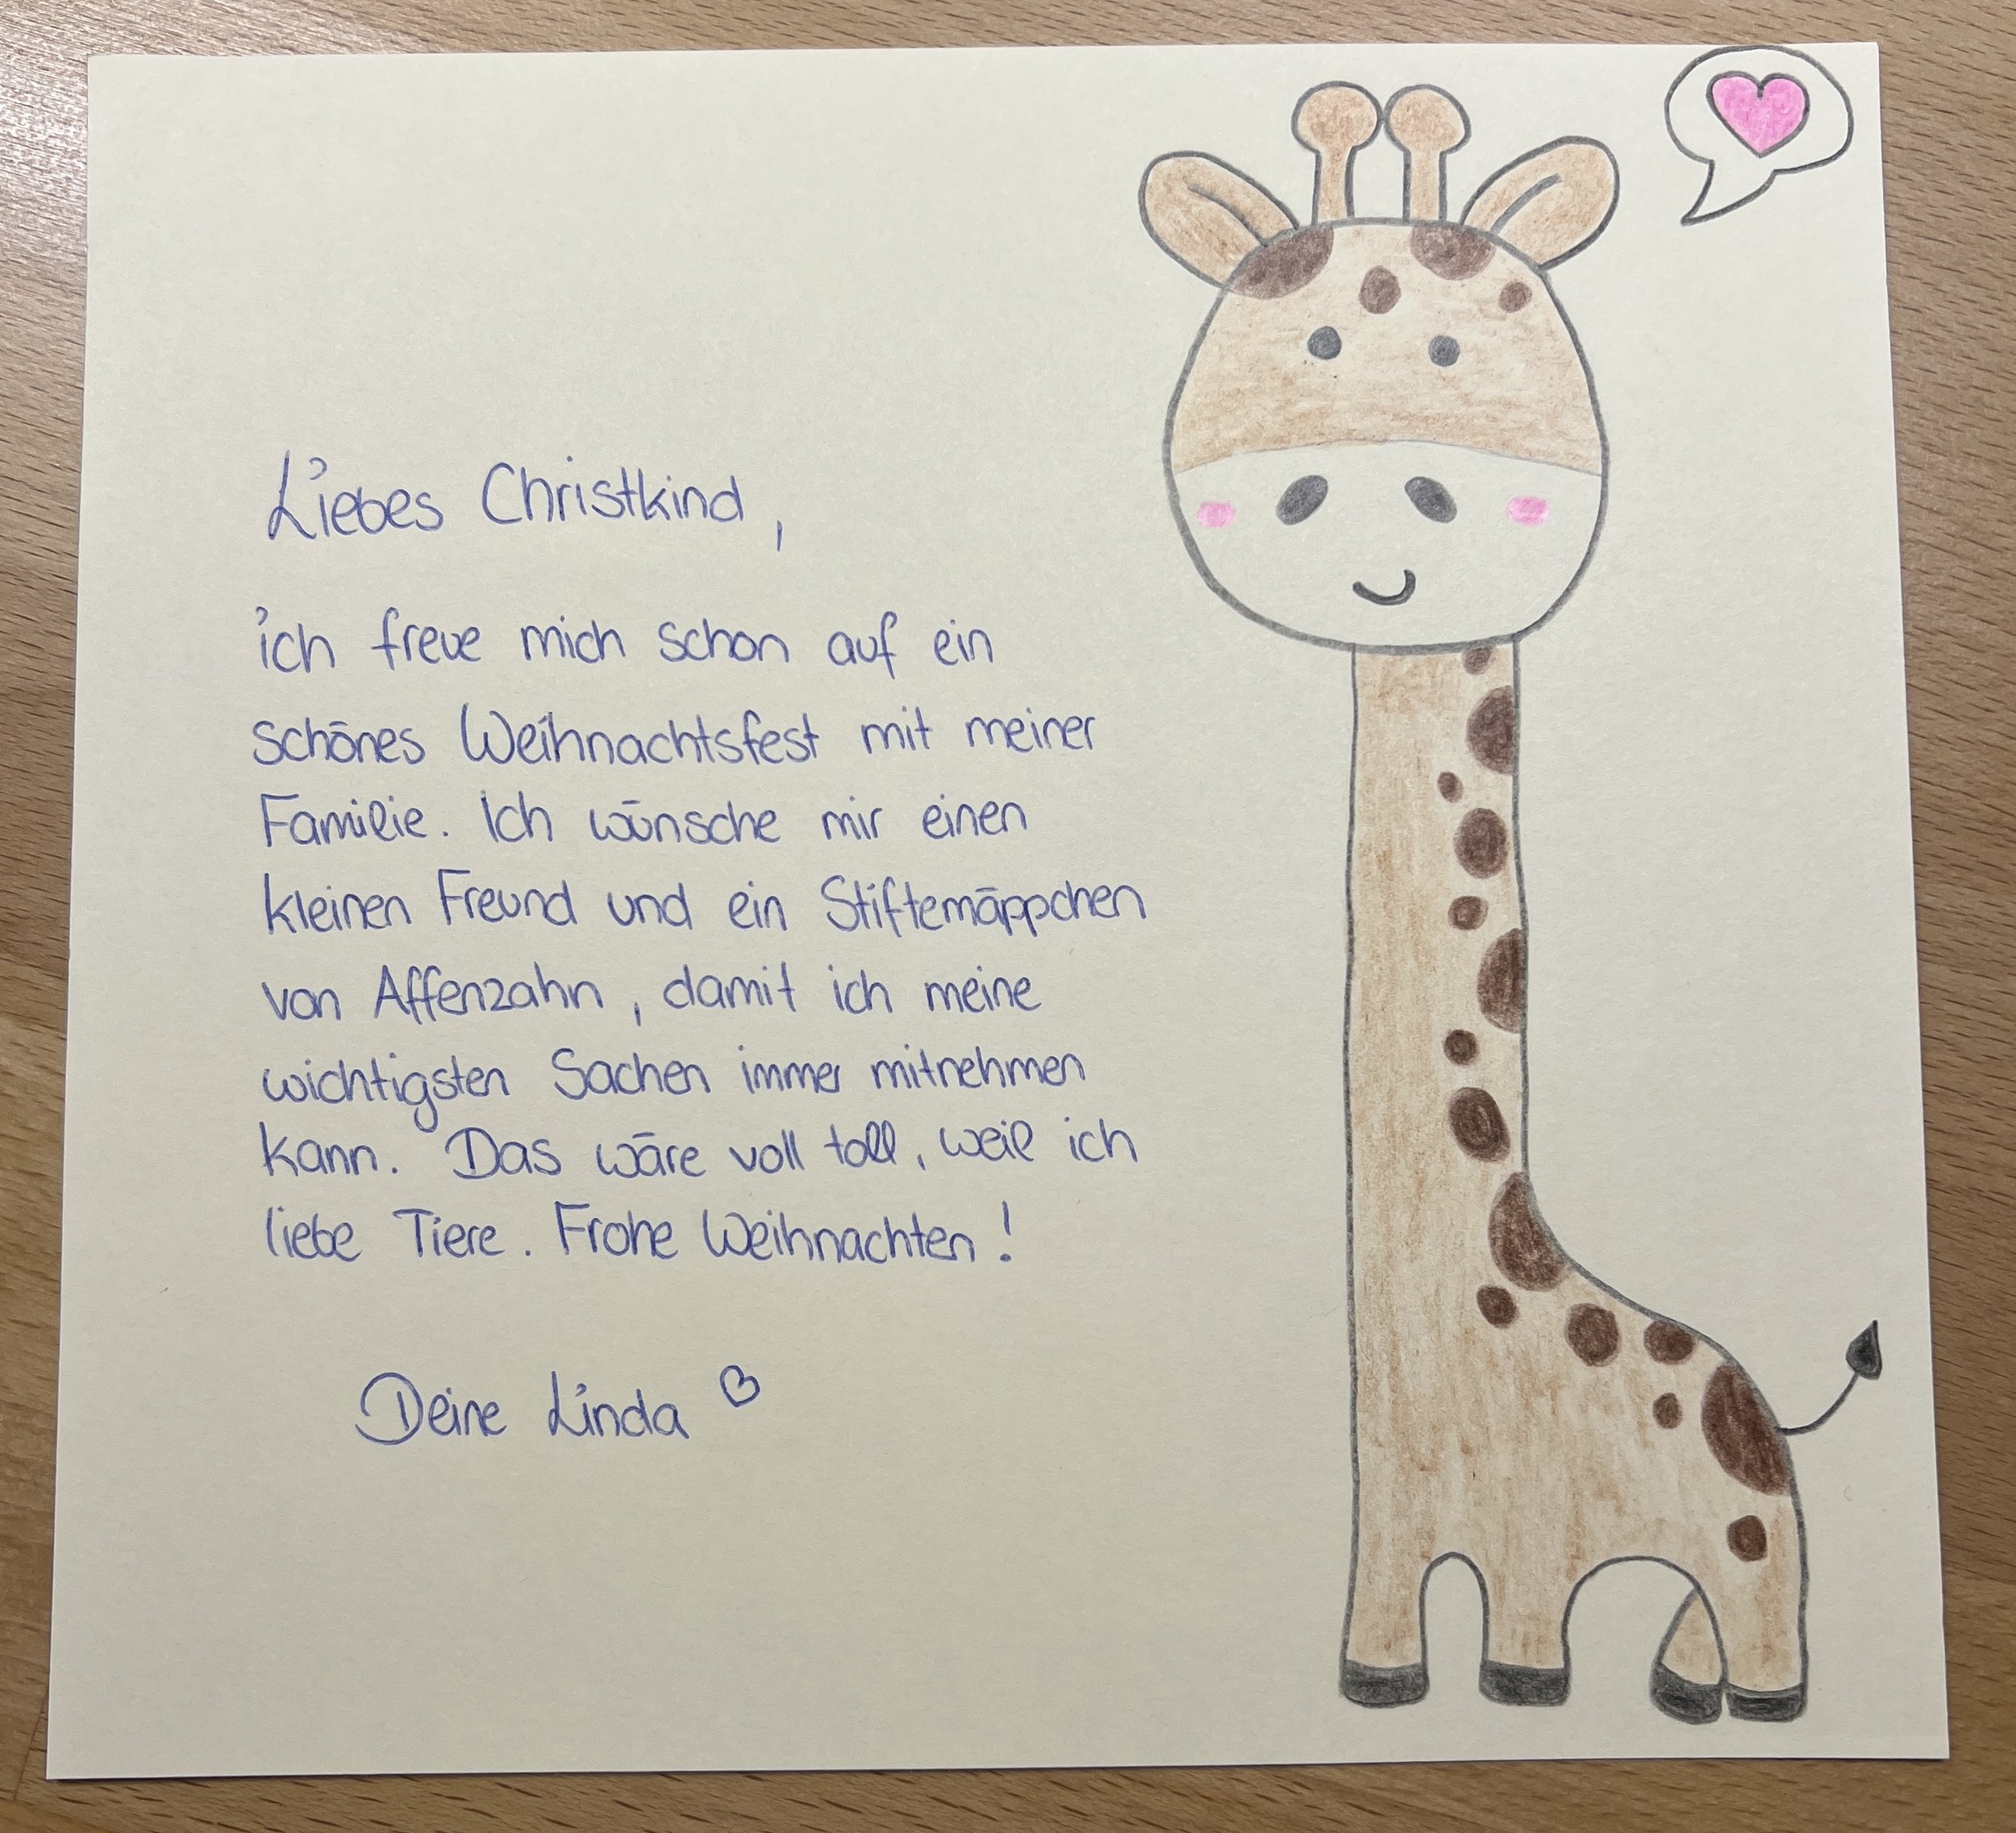 Liebes Christkind,
ich freue mich schon auf ein
schönes Weihnachtsfest mit meiner
Familie. Ich wünsche mir einen
kleinen Freund und ein Stiftemäppchen
von Affenzahn, damit ich meine
wichtigsten Sachen immer mitnehmen
kann. Das wäre voll toll, weil ich
liebe Tiere. Frohe Weihnachten!
Deine Linda ♡